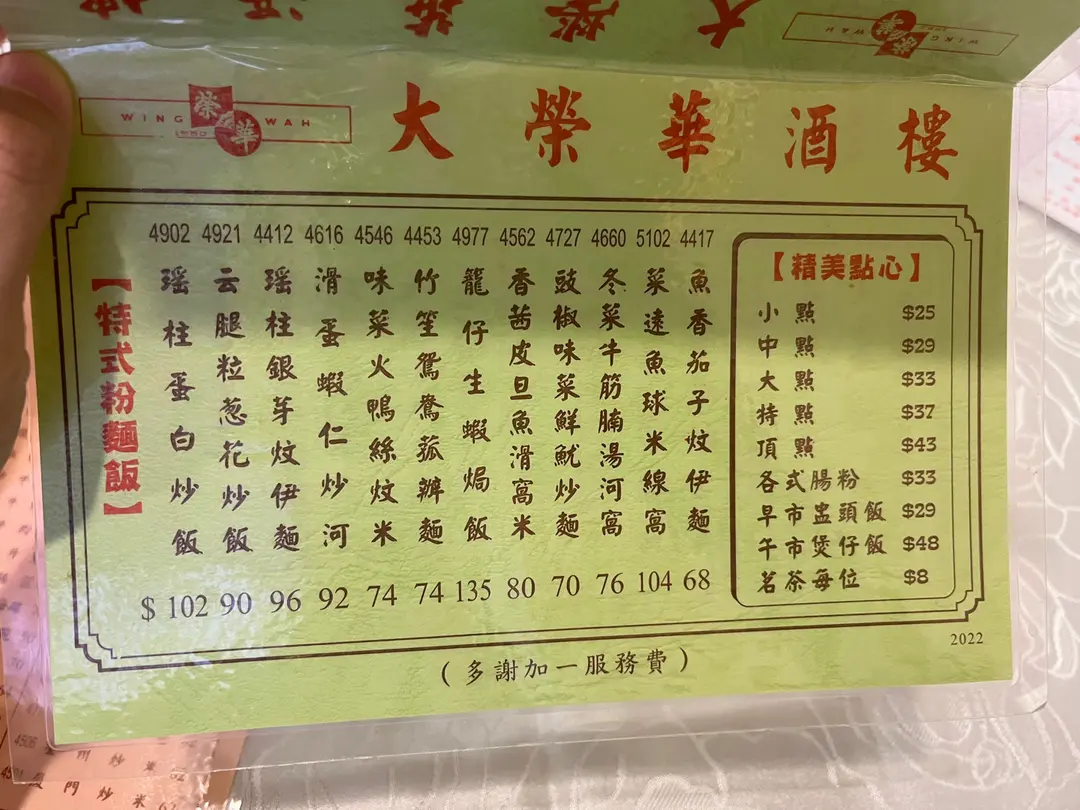 大榮華酒樓
WING WAH
榮華
WING WAH
榮華
大榮華酒樓
【特式粉麵飯】
4902 瑤柱蛋白炒飯 $ 102
4921 云腿粒葱花炒飯 90
4412 瑤柱銀芽炆伊麵 96
4616 滑蛋蝦仁炒河 92
4546 味菜火鴨絲炆米 74
4453 竹笙鴛鴦菰辦麵 74
4977 籠仔生蝦焗飯 135
4562 香茜皮旦魚滑窩米 80
4727 豉椒味菜鮮魷炒麵 70
4660 冬菜牛筋腩湯河窩 76
5102 菜遠魚球米線窩 104
4417 魚香茄子炆伊麵 68
【精美點心】
小點 $25
中點 $29
大點 $33
特點 $37
頂點 $43
各式腸粉 $33
早市盅頭飯 $29
午市煲仔飯 $48
茗茶每位 $8
2022
(多謝加一服務費)
州炒米
門炒米